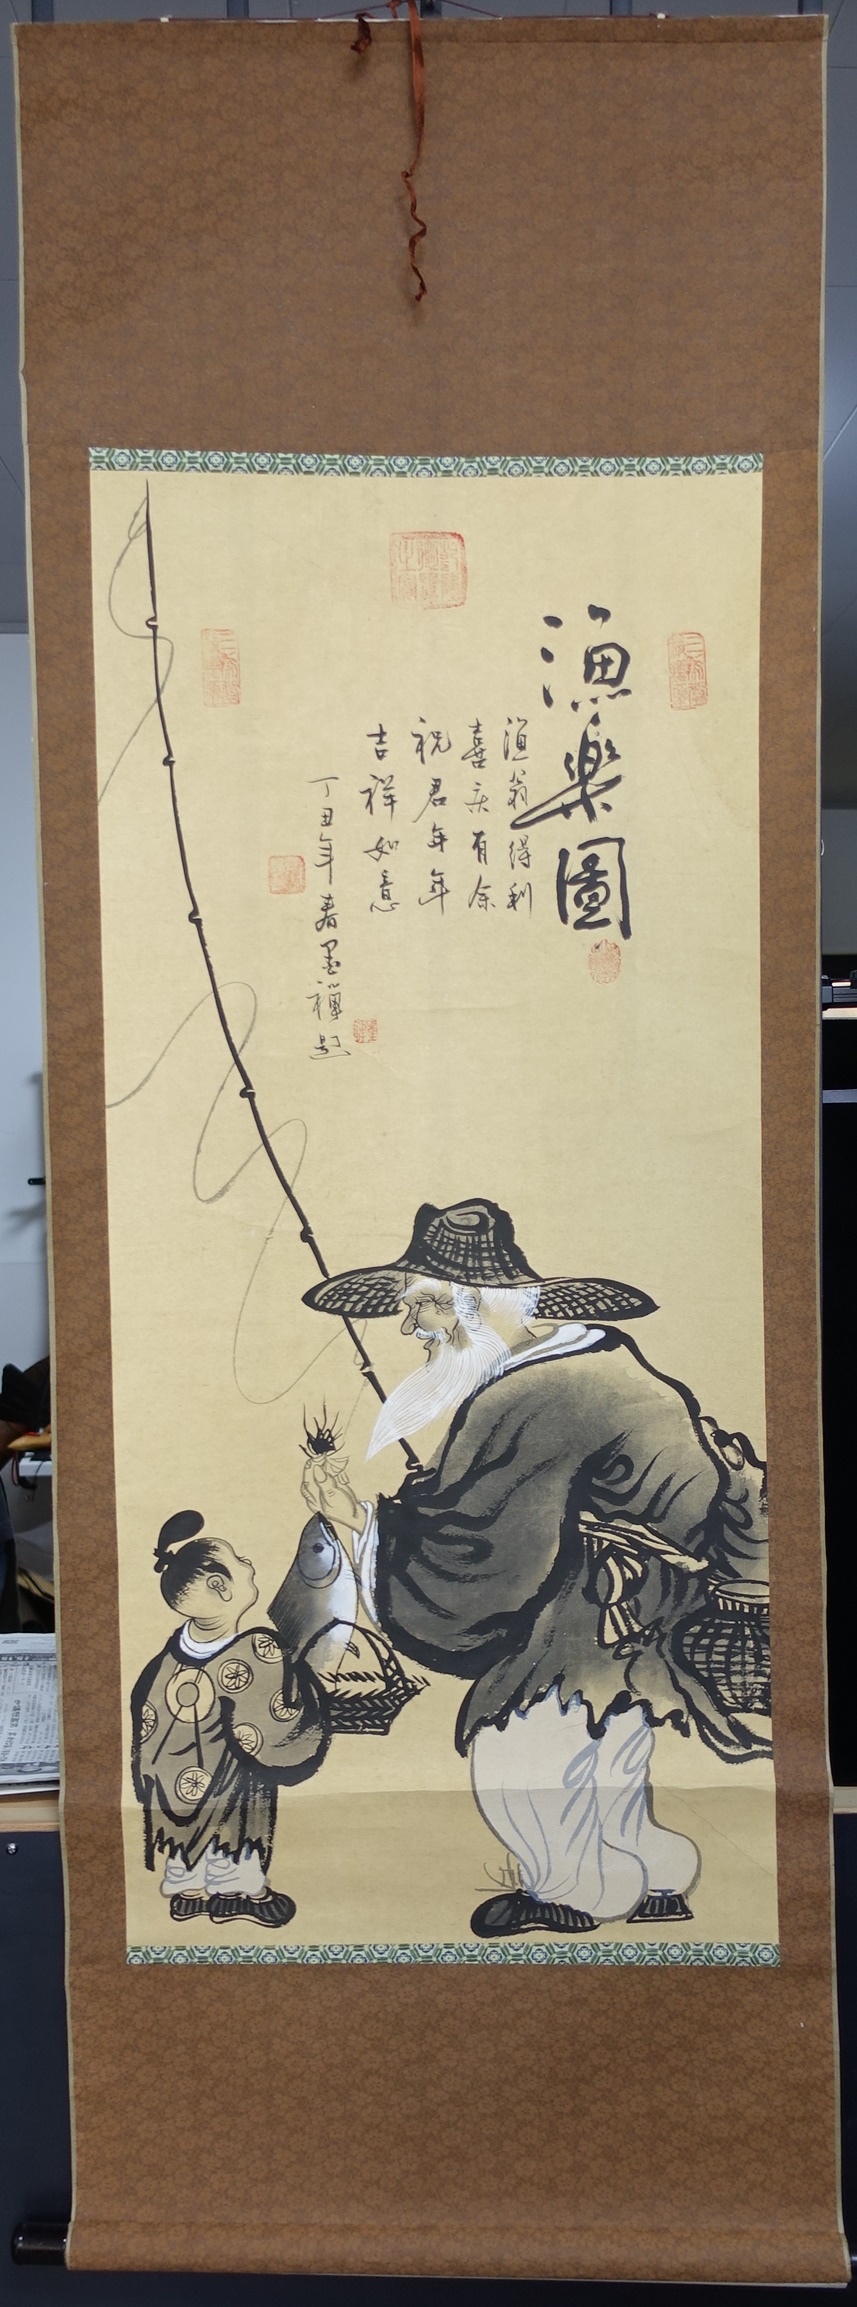 漁樂圖
漁翁得利
喜庆有余
祝君年年
吉祥如意
丁丑年春墨禪题